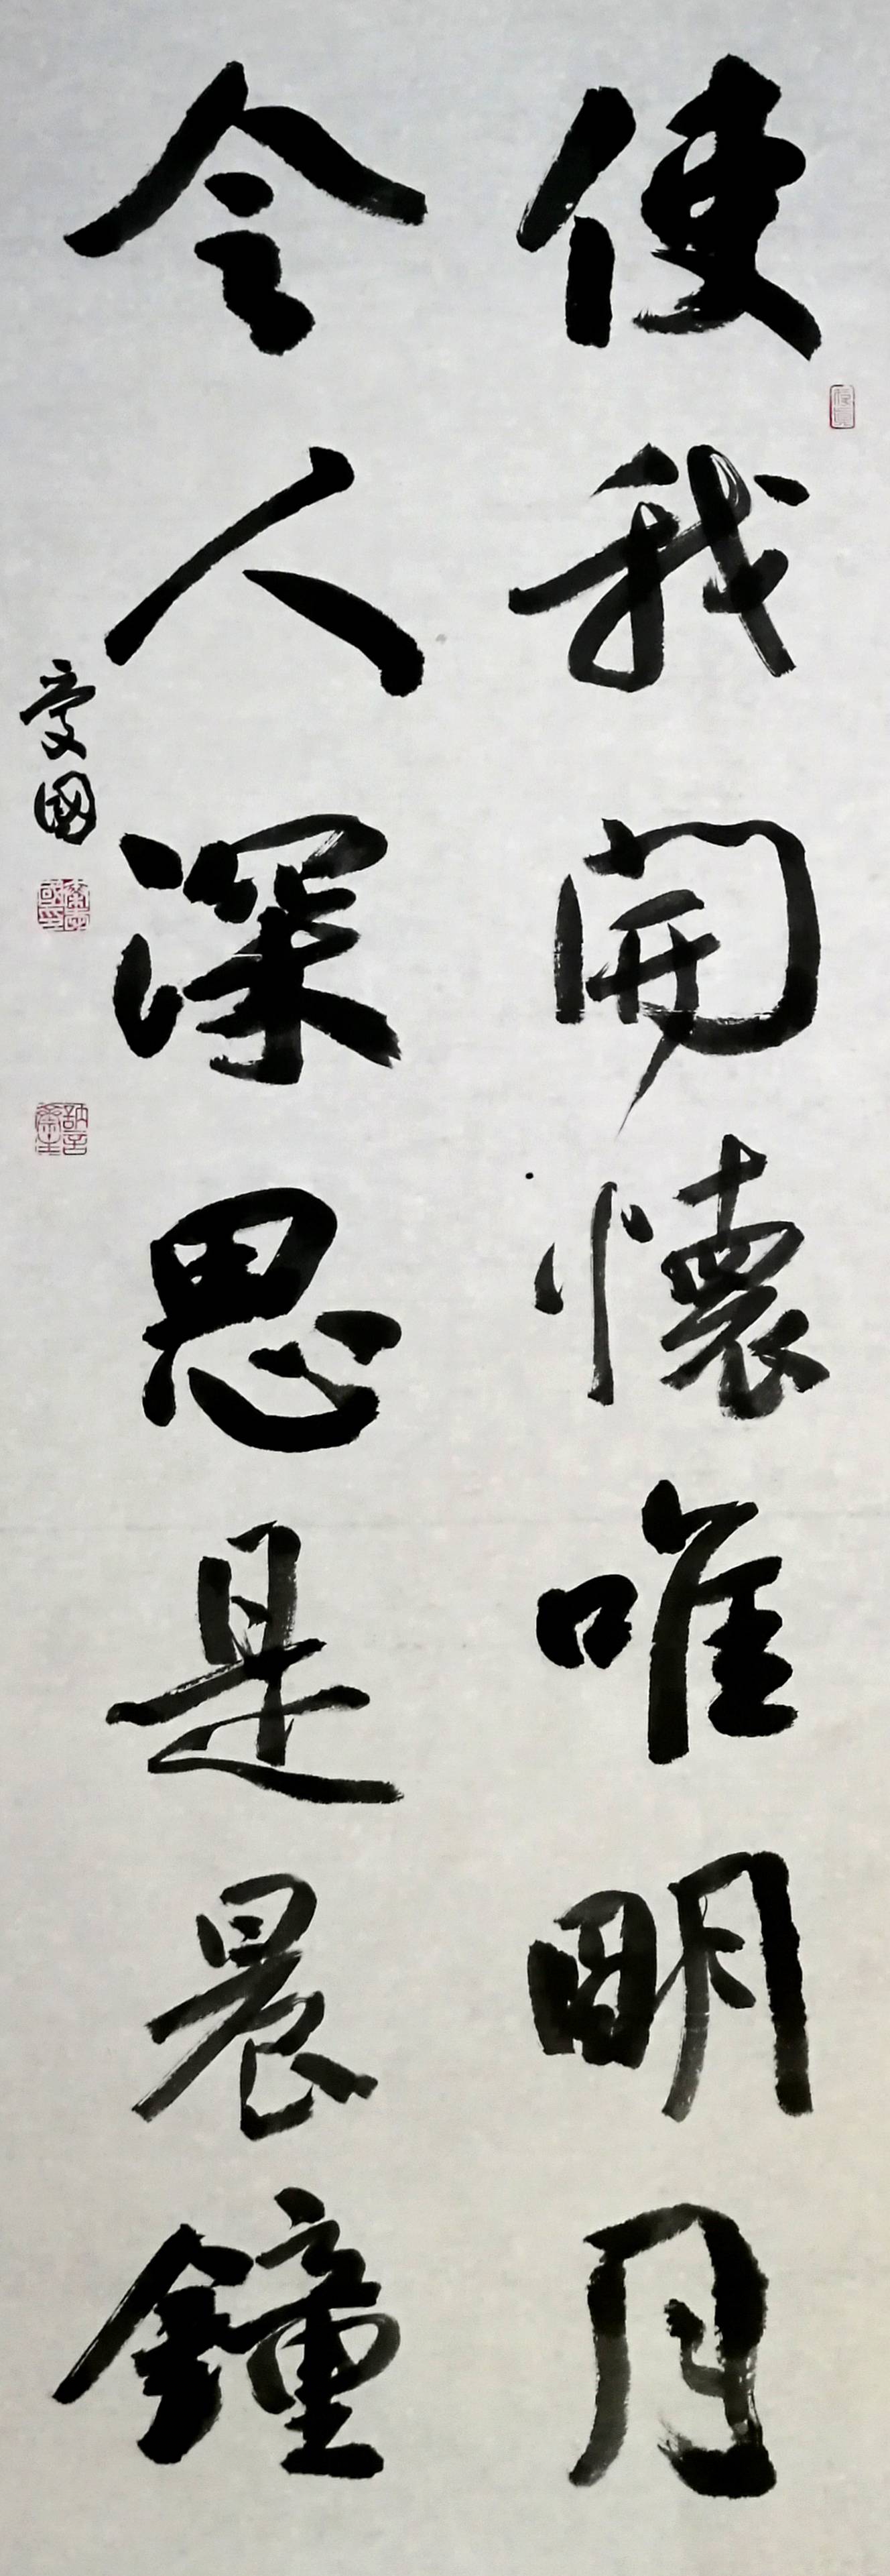 使我開懷唯明月
令人深思是晨鐘
愛國